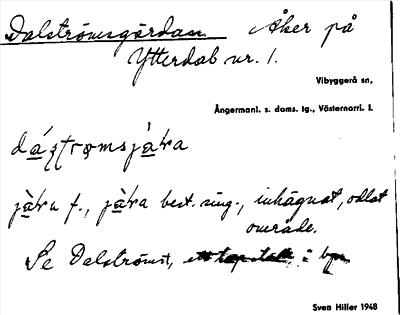 Dalströmsgärdan Åker på
Ytterdal nr. 1.
Vibyggerå sn,
Ångermanl. s. doms. tg., Västernorrl. l.
dáʂʈrǫmsjàra
jàra f., jàra best. sing., inhägnat, odlat
område.
Se Dalströmst, i byn
Sven Hiller 1948